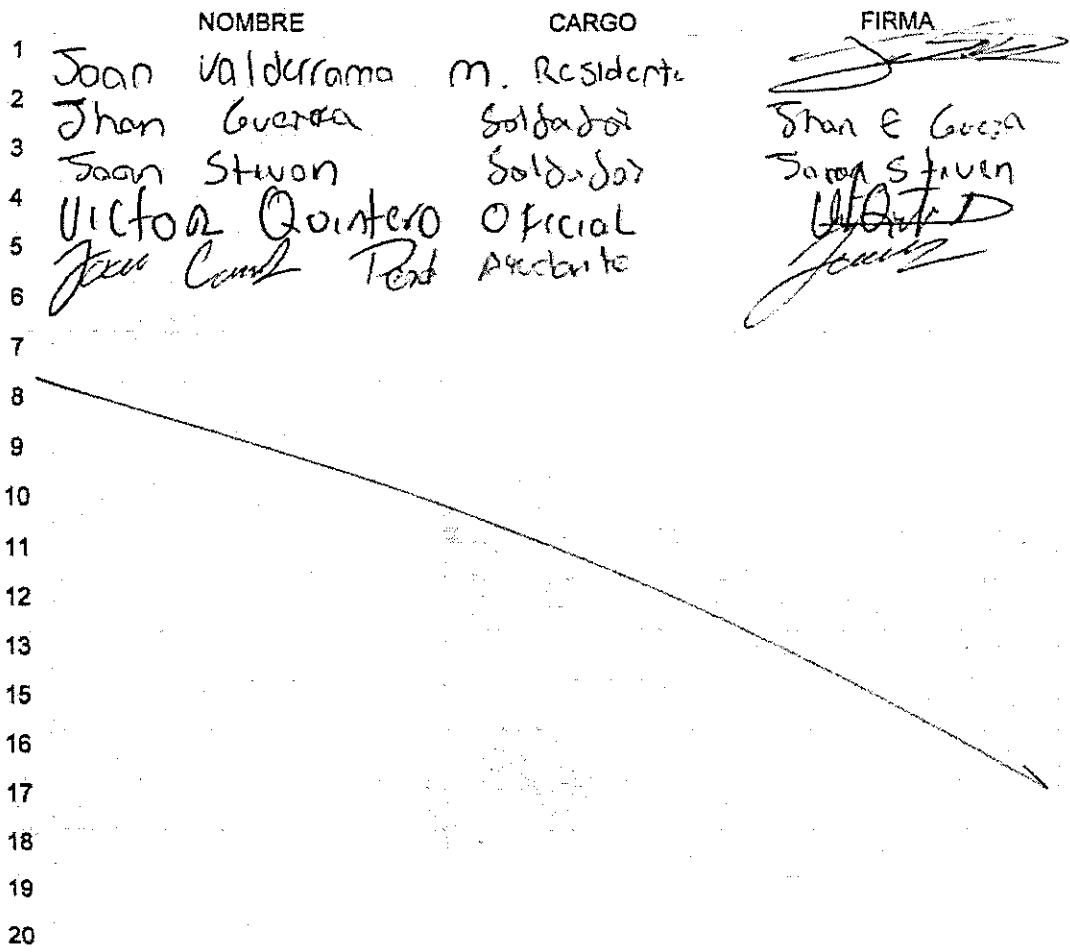 NOMBRE CARGO FIRMA
1 Joan Valderrama M. Residente
2 Jhan Guerra Soldador Jhan E Guerra
3 Joan Stivon Soldador Stiven
4 Victor Quintero Oficial
5 Ayudante
6
7
8
9
10
11
12
13
15
16
17
18
19
20